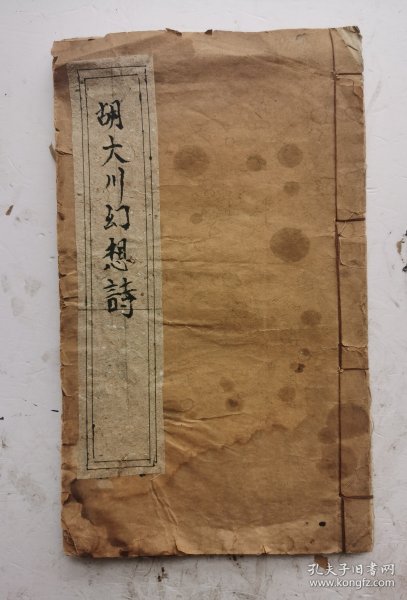 胡大川幻想詩
孔夫子旧书网
www.kongfz.com